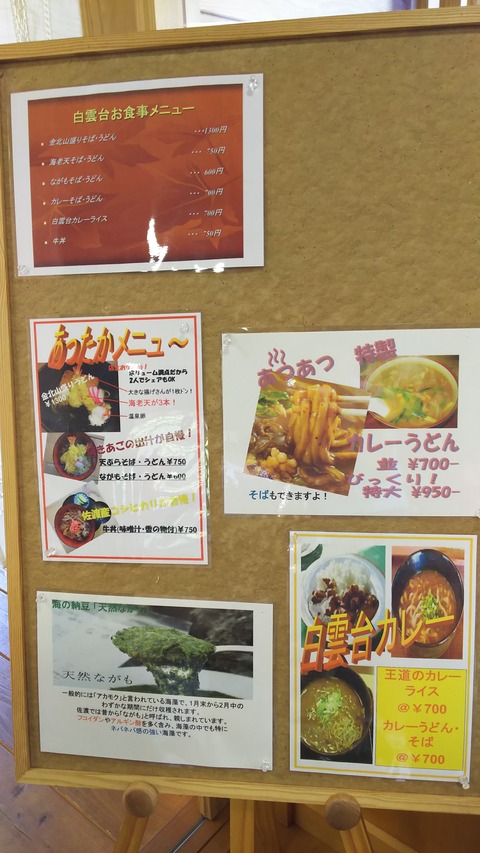 白雲台お食事メニュー
金北山盛りそば・うどん ･･･1300円
海老天そば・うどん ･･･ 750円
ながもそば・うどん ･･･ 600円
カレーそば・うどん ･･･ 700円
白雲台カレーライス ･･･ 700円
牛丼 ･･･ 750円
あったかメニュ～
ボリューム満点だから
2人でシェアもOK
金北山盛りうどん
¥1300
大きな揚げさんが1枚ドン!
海老天が3本!
温泉卵
あごの出汁が自慢!
天ぷらそば・うどん¥750
ながもそば・うどん¥600
佐渡産コシヒカリ
牛丼(味噌汁・香の物付)¥750
あつあつ 特製
カレーうどん
並 ¥700-
びっくり!
特大 ¥950-
そばもできますよ!
海の納豆「天然ながも」
天然ながも
一般的には「アカモク」と言われている海藻で、1月末から2月中の
わずかな期間にだけ収穫されます。
佐渡では昔から「ながも」と呼ばれ、親しまれています。
フコイダンやアルギン酸を多く含み、海藻の中でも特に
ネバネバ感の強い海藻です。
白雲台カレー
王道のカレー
ライス
@¥700
カレーうどん・
そば
@¥700